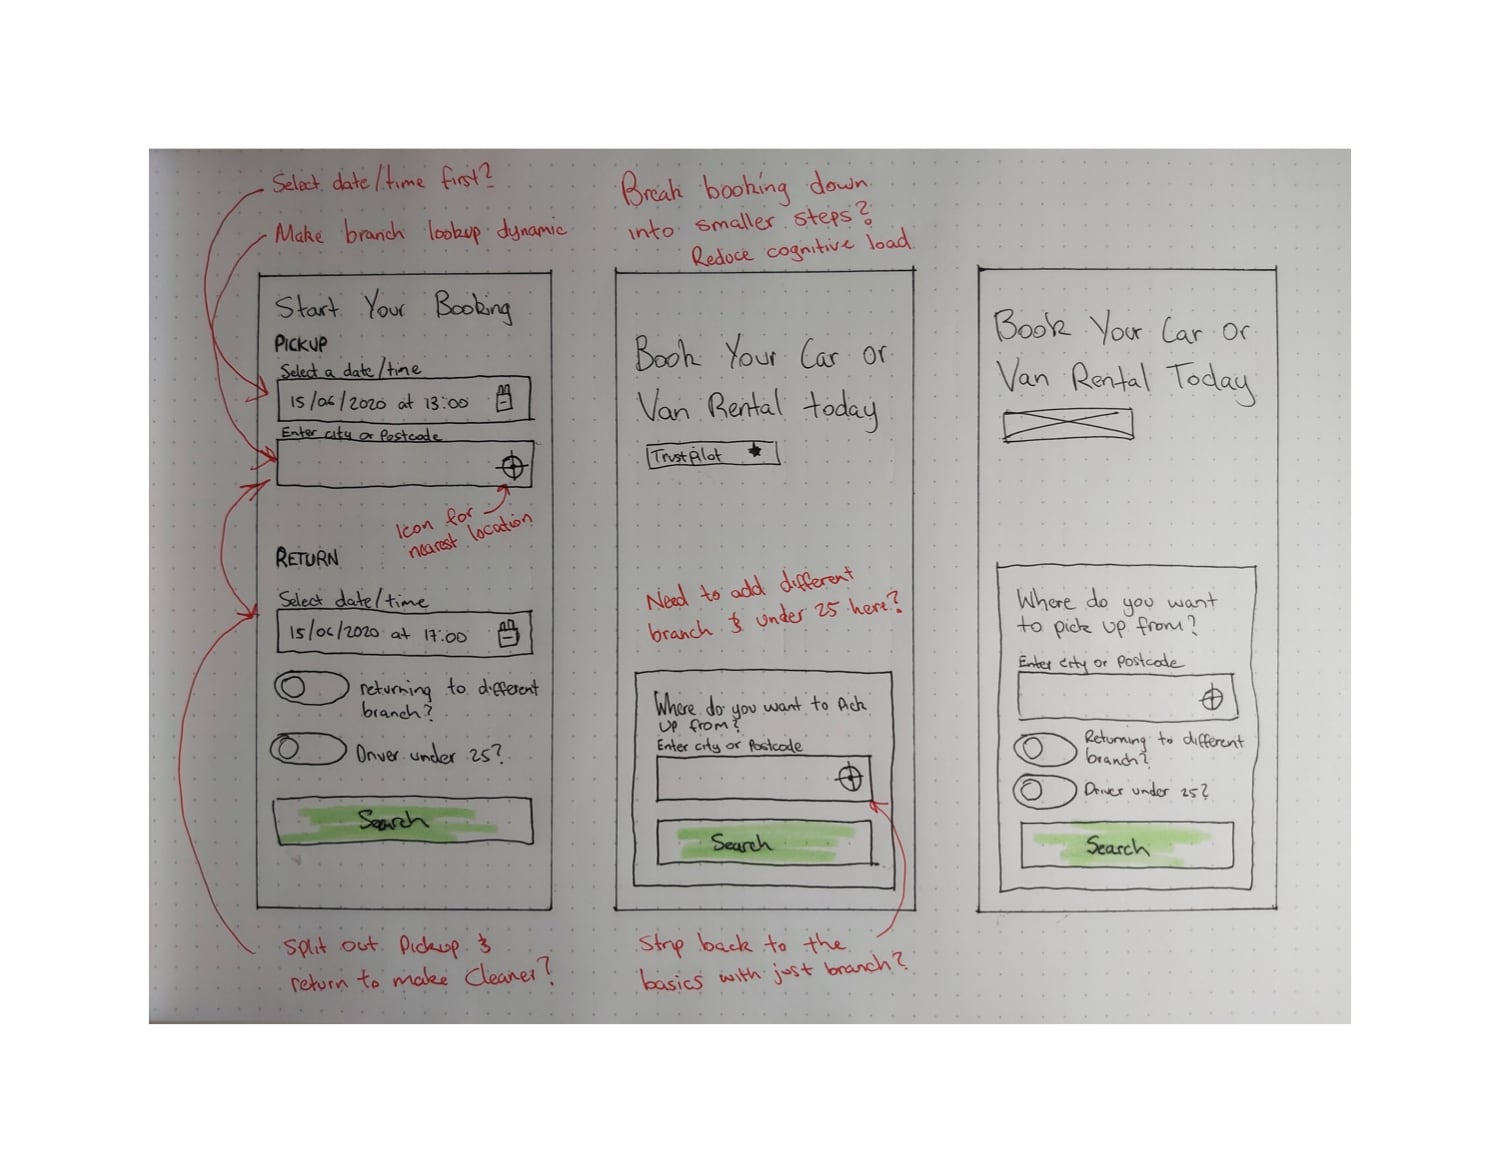 Select date/time first?
Make branch lookup dynamic
Start Your Booking
PICKUP
Select a date/time
15/06/2020 at 13:00
Enter city or Postcode
Icon for
nearest location
RETURN
Select date/time
15/06/2020 at 17:00
returning to different
branch?
Driver under 25?
Search
Split out Pickup &
return to make Cleaner?
Break booking down
into smaller steps?
Reduce cognitive load
Book Your Car or
Van Rental today
Trustpilot
Need to add different
branch & under 25 here?
Where do you want to Pick
up from?
Enter city or Postcode
Search
Strip back to the
basics with just branch?
Book Your Car or
Van Rental Today
Where do you want
to pick up from?
Enter city or Postcode
Returning to different
branch?
Driver under 25?
Search